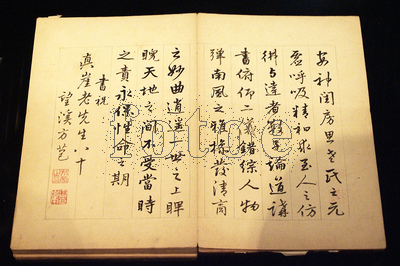 安神閨房思老氏之元
虛呼吸精和求至人之仿
彿与達者數子論道講
書俯仰二儀錯綜人物
彈南風之雅操發清商
之妙曲逍遙一世之上睥
睨天地之間不受當時
之責永保性命之期
書祝
滇崖老先生八十
望溪方苞
iotoe